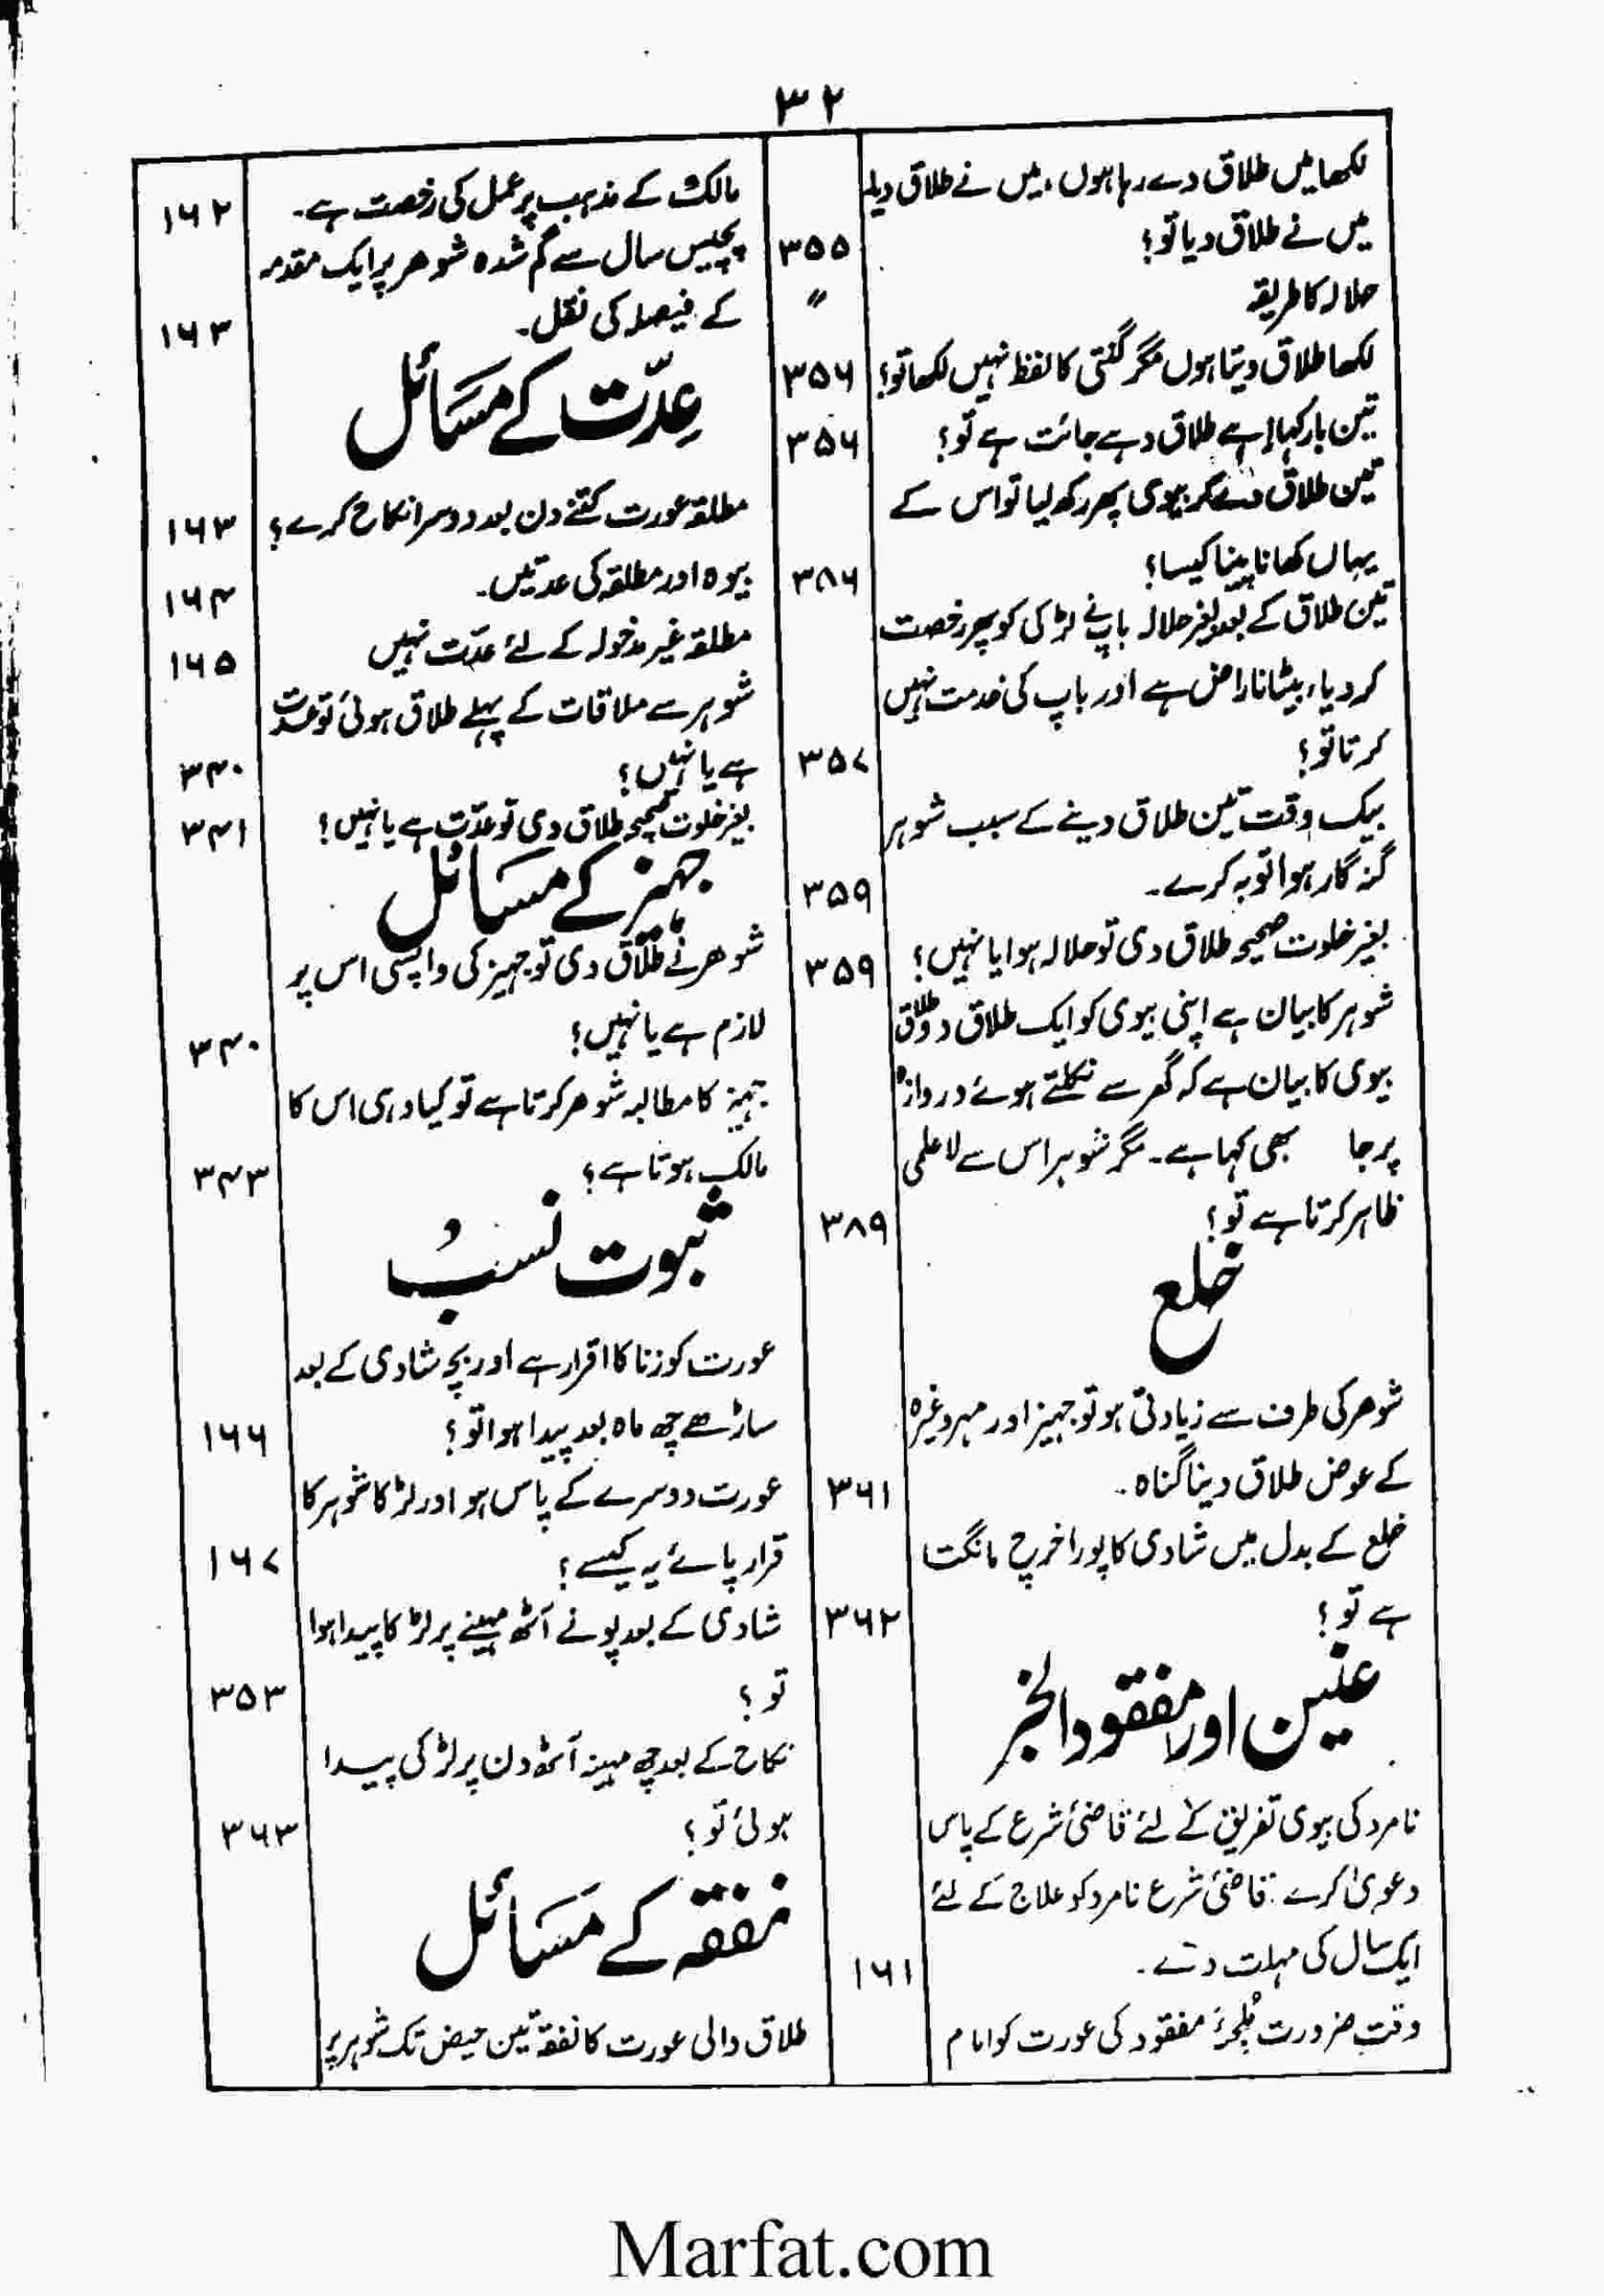 ۳۲
لکھا میں طلاق دے رہا ہوں، میں نے طلاق دیا،
میں نے طلاق دیا تو؟ ۳۵۵
حلالہ کا طریقہ ״
لکھا طلاق دیتا ہوں مگر گنتی کا لفظ نہیں لکھا تو؟ ۳۵۶
تین بار کہا اسے طلاق دہے جائت ہے تو؟ ۳۵۶
تین طلاق دے کر بیوی پھر رکھ لیا تو اس کے
یہاں کھانا پینا کیسا؟ ۳۸۶
تین طلاق کے بعد بغیر حلالہ باپ نے لڑکی کو پھر رخصت
کر دیا، بیٹا ناراض ہے اور باپ کی خدمت نہیں
کرتا تو؟ ۳۵۷
بیک وقت تین طلاق دینے کے سبب شوہر
گنہ گار ہوا توبہ کرے۔ ۳۵۹
بغیر خلوت صحیحہ طلاق دی تو حلالہ ہوا یا نہیں؟ ۳۵۹
شوہر کا بیان ہے اپنی بیوی کو ایک طلاق دو طلاق
بیوی کا بیان ہے کہ گھر سے نکلتے ہوئے دروازہ
پر جا بھی کہا ہے۔ مگر شوہر اس سے لاعلمی
ظاہر کرتا ہے تو؟ ۳۸۹
خلع
شوھر کی طرف سے زیادتی ہو تو جہیز اور مہر وغیرہ
کے عوض طلاق دینا گناہ۔ ۳۶۱
خلع کے بدل میں شادی کا پورا خرچ مانگتا
ہے تو؟ ۳۶۲
عنین اور مفقود الخبر
نامرد کی بیوی تفریق کے لئے قاضیٔ شرع کے پاس
دعویٰ کرے۔ قاضیٔ شرع نامرد کو علاج کے لئے
ایک سال کی مہلت دے۔ ۱۶۱
وقتِ ضرورت ملجئہ مفقود کی عورت کو امام
مالک کے مذہب پر عمل کی رخصت ہے۔ ۱۶۲
پچیس سال سے گم شدہ شوھر پر ایک مقدمہ
کے فیصلہ کی نقل۔ ۱۶۳
عِدّت کے مَسَائل
مطلقہ عورت کتنے دن بعد دوسرا نکاح کرے؟ ۱۶۳
بیوہ اور مطلقہ کی عدتیں۔ ۱۶۴
مطلقہ غیر مدخولہ کے لئے عدّت نہیں ۱۶۵
شوہر سے ملاقات کے پہلے طلاق ہوئی تو عدت
ہے یا نہیں؟ ۳۴۰
بغیر خلوت صحیحہ طلاق دی تو عدّت ہے یا نہیں؟ ۳۴۱
جہیز کے مسائل
شوھر نے طلاق دی تو جہیز کی واپسی اس پر
لازم ہے یا نہیں؟ ۳۴۰
جہیز کا مطالبہ شوھر کرتا ہے تو کیا وہی اس کا
مالک ہوتا ہے؟ ۳۴۳
ثبوت نسبُ
عورت کو زنا کا اقرار ہے اور بچہ شادی کے بعد
ساڑھے چھ ماہ بعد پیدا ہوا تو؟ ۱۶۶
عورت دوسرے کے پاس ہو اور لڑکا شوہر کا
قرار پائے یہ کیسے؟ ۱۶۷
شادی کے بعد پونے آٹھ مہینے پر لڑکا پیدا ہوا
تو؟ ۳۵۳
نکاح کے بعد چھ مہینہ آٹھ دن پر لڑکی پیدا
ہوئی تو؟ ۳۶۳
نفقہ کے مَسَائل
طلاق والی عورت کا نفقہ تین حیض تک شوہر پر
Marfat.com